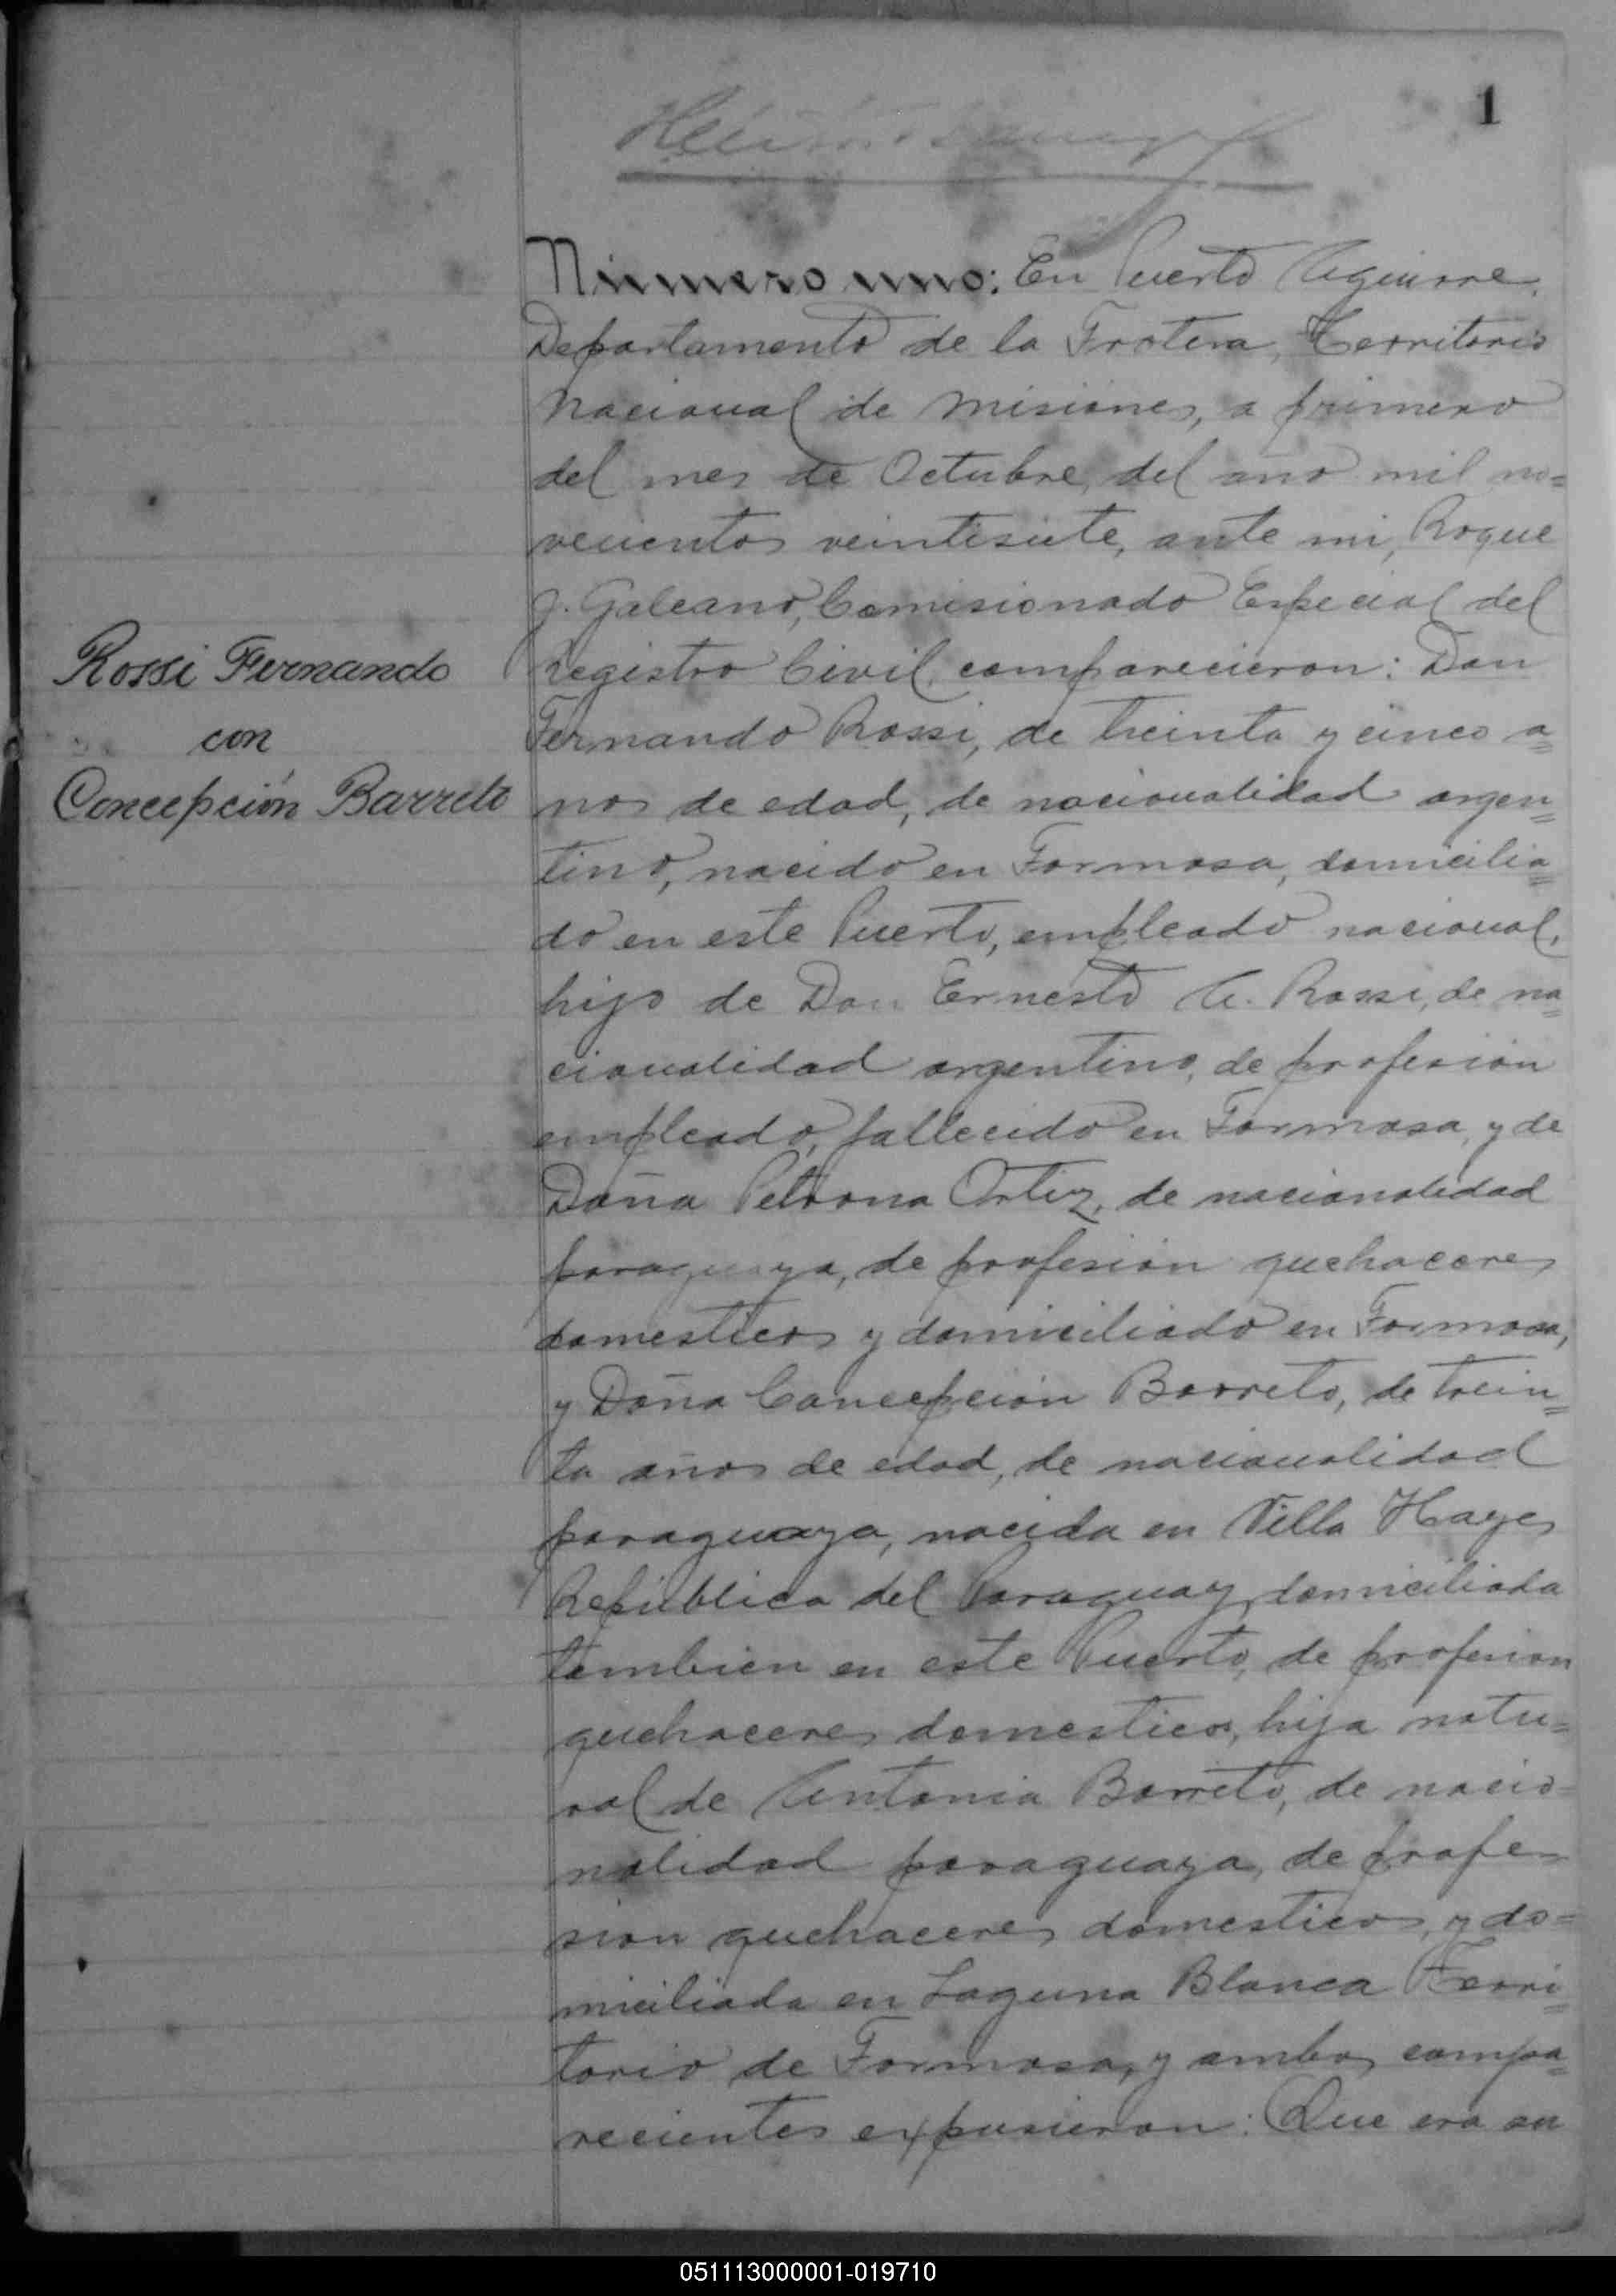 1
Número uno: En Puerto Aguirre,
Departamento de la Frotera, Territorio
Nacional de Misiones, a primero
del mes de Octubre, del año mil no=
vecientos veintisiete, ante mi, Roque
J. Galeano, Comisionado Especial del
Registro Civil, comparecieron: Don
Rossi Fernando
con
Concepción Barreto
Fernando Rossi, de treinta y cinco a=
ños de edad, de nacionalidad argen=
tino, nacido en Formosa, domicilia=
do en este Puerto, empleado nacional,
hijo de Don Ernesto A. Rossi, de na=
cionalidad argentino, de profesión
empleado, fallecido en Formosa, y de
Doña Petrona Ortiz, de nacionalidad
paraguaya, de profesión quehaceres
domesticos y domiciliado en Formosa,
y Doña Concepción Barreto, de trein=
ta años de edad, de nacionalidad
paraguaya, nacida en Villa Hayes
República del Paraguay, domiciliada
tambien en este Puerto, de profesion
quehaceres domesticos, hija natu=
ral de Antonia Barreto, de nacio=
nalidad paraguaya, de profe=
sion quehaceres domesticos, y do=
miciliada en Laguna Blanca Terri=
torio de Formosa, y ambos compa=
recientes expusieron: Que era su
051113000001-019710